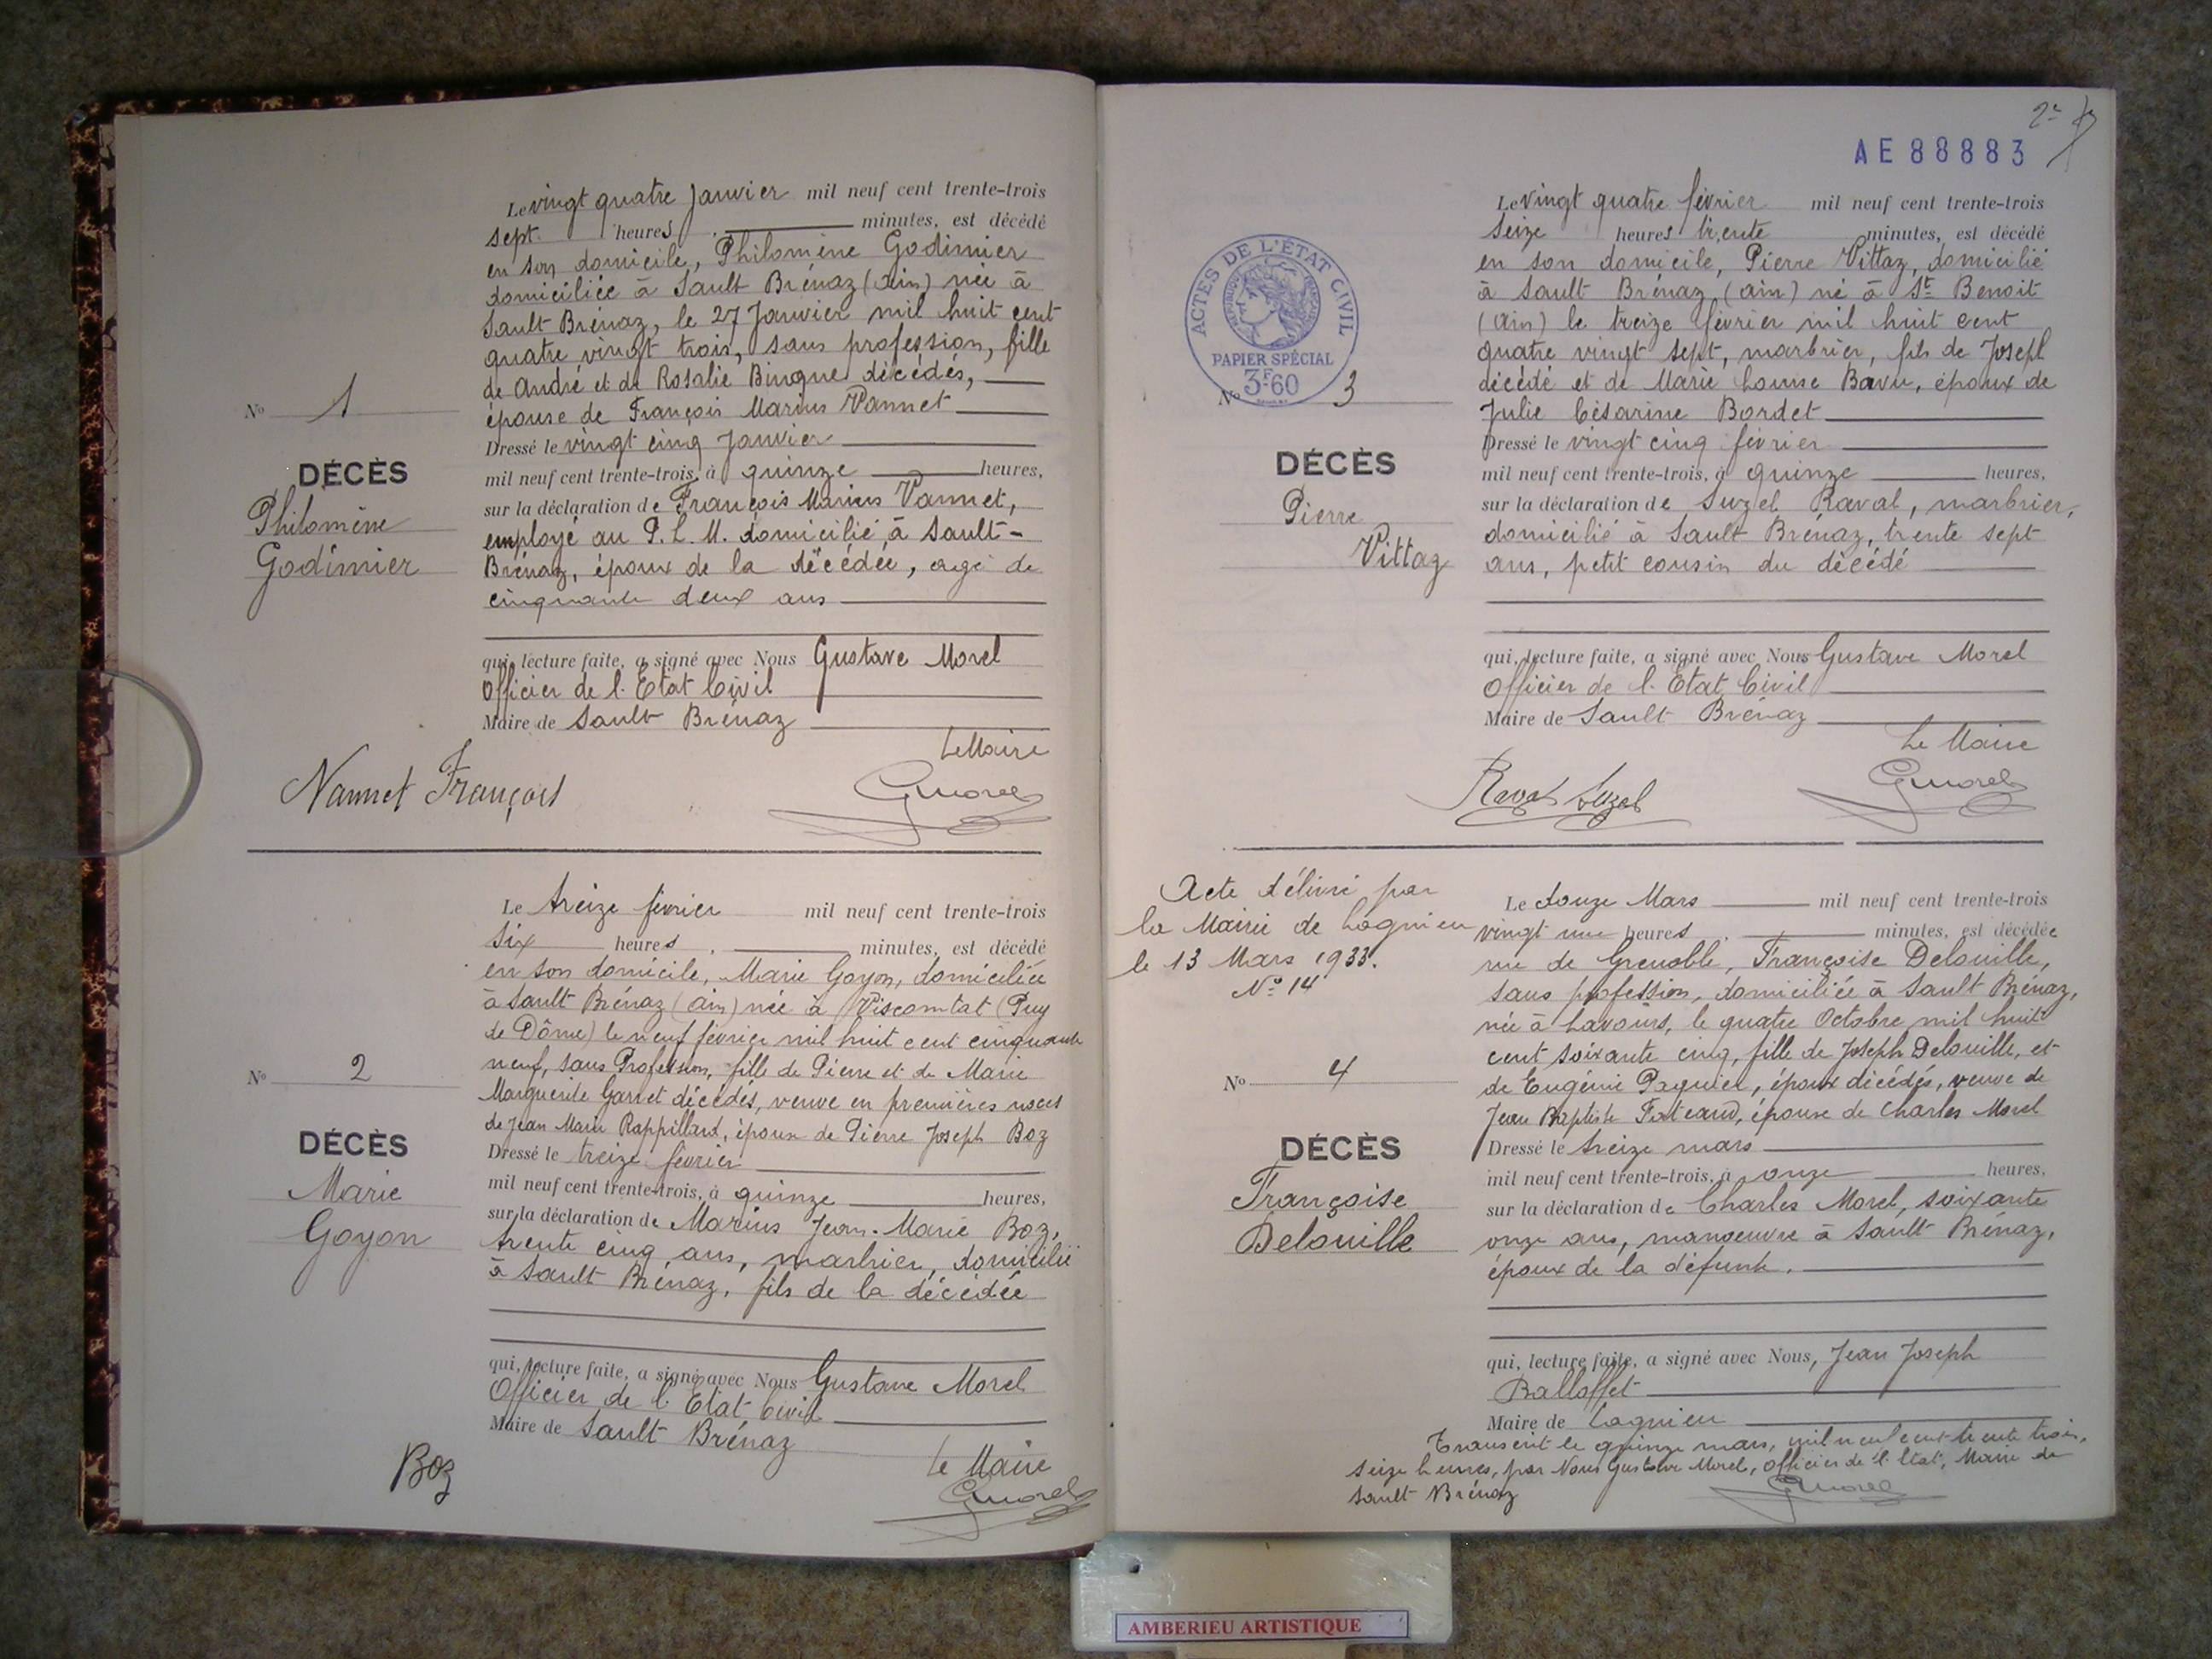 Le vingt quatre Janvier mil neuf cent trente-trois
sept heures minutes, est décédé
en son domicile, Philomène Godimier
domiciliée à Sault Brénaz (Ain) née à
Sault Brénaz, le 27 Janvier mil huit cent
quatre vingt trois, sans profession, fille
de André et de Rosalie Binque décédés,
épouse de François Marius Vannet
Dressé le vingt cinq Janvier
mil neuf cent trente-trois, à quinze heures,
sur la déclaration de François Marius Vannet,
employé au P. L. M. domicilié à Sault-
Brénaz, époux de la décédée, agé de
cinquante deux ans
qui, lecture faite, a signé avec Nous Gustave Morel
Officier de l'Etat Civil
Maire de Sault Brénaz
Le Maire
Nannet François
GMorel
No 1
DÉCÈS
Philomène
Godimier
Le treize février mil neuf cent trente-trois
six heures minutes, est décédé
en son domicile, Marie Goyon, domiciliée
à Sault Brénaz (Ain) née à Viscomtat (Puy
de Dôme) le neuf février mil huit cent cinquante
neuf, sans Profession, fille de Pierre et de Marie
Marguerite Garret décédés, veuve en premières noces
de Jean Marie Rappillard, épouse de Pierre Joseph Boz
Dressé le treize février
mil neuf cent trente-trois, à quinze heures,
sur la déclaration de Marius Jean-Marie Boz,
trente cinq ans, marbrier, domicilié
à Sault Brénaz, fils de la décédée
qui, lecture faite, a signé avec Nous Gustave Morel
Officier de l'Etat Civil
Maire de Sault Brénaz
Le Maire
Boz
GMorel
No 2
DÉCÈS
Marie
Goyon
2e
AE 88883
Le vingt quatre février mil neuf cent trente-trois
seize heures trente minutes, est décédé
en son domicile, Pierre Vittaz, domicilié
à Sault Brénaz (Ain) né à St Benoit
(Ain) le treize février mil huit cent
quatre vingt sept, marbrier, fils de Joseph
décédé et de Marie Louise Bavu, époux de
Julie Césarine Bordet
Dressé le vingt cinq février
mil neuf cent trente-trois, à quinze heures.
sur la déclaration de Suzel Raval, marbrier,
domicilié à Sault Brénaz, trente sept
ans, petit cousin du décédé
qui, lecture faite, a signé avec Nous Gustave Morel
Officier de l'Etat Civil
Maire de Sault Brénaz
Le Maire
Raval Suzel
GMorel
ACTES DE L'ÉTAT CIVIL
PAPIER SPÉCIAL
3F60
No 3
DÉCÈS
Pierre
Vittaz
Acte délivré par
la Mairie de Lagnieu
le 13 Mars 1933.
No 14
Le douze Mars mil neuf cent trente-trois
vingt une heures minutes, est décédée
rue de Grenoble, Françoise Delouille,
sans profession, domiciliée à Sault Brénaz,
née à Lavours, le quatre Octobre mil huit
cent soixante cinq, fille de Joseph Delouille, et
de Eugénie Paquier, époux décédés, veuve de
Jean Baptiste Fateaud, épouse de Charles Morel
Dressé le treize mars
mil neuf cent trente-trois, à onze heures.
sur la déclaration de Charles Morel, soixante
onze ans, manoeuvre à Sault Brénaz,
époux de la défunte.
qui, lecture faite, a signé avec Nous, Jean Joseph
Balloffet
Maire de Lagnieu
Transcrit le quinze mars, mil neuf cent trente trois,
seize heures, par Nous Gustave Morel, officier de l'Etat, Maire de
Sault Brénaz
GMorel
No 4
DÉCÈS
Françoise
Delouille
AMBERIEU ARTISTIQUE